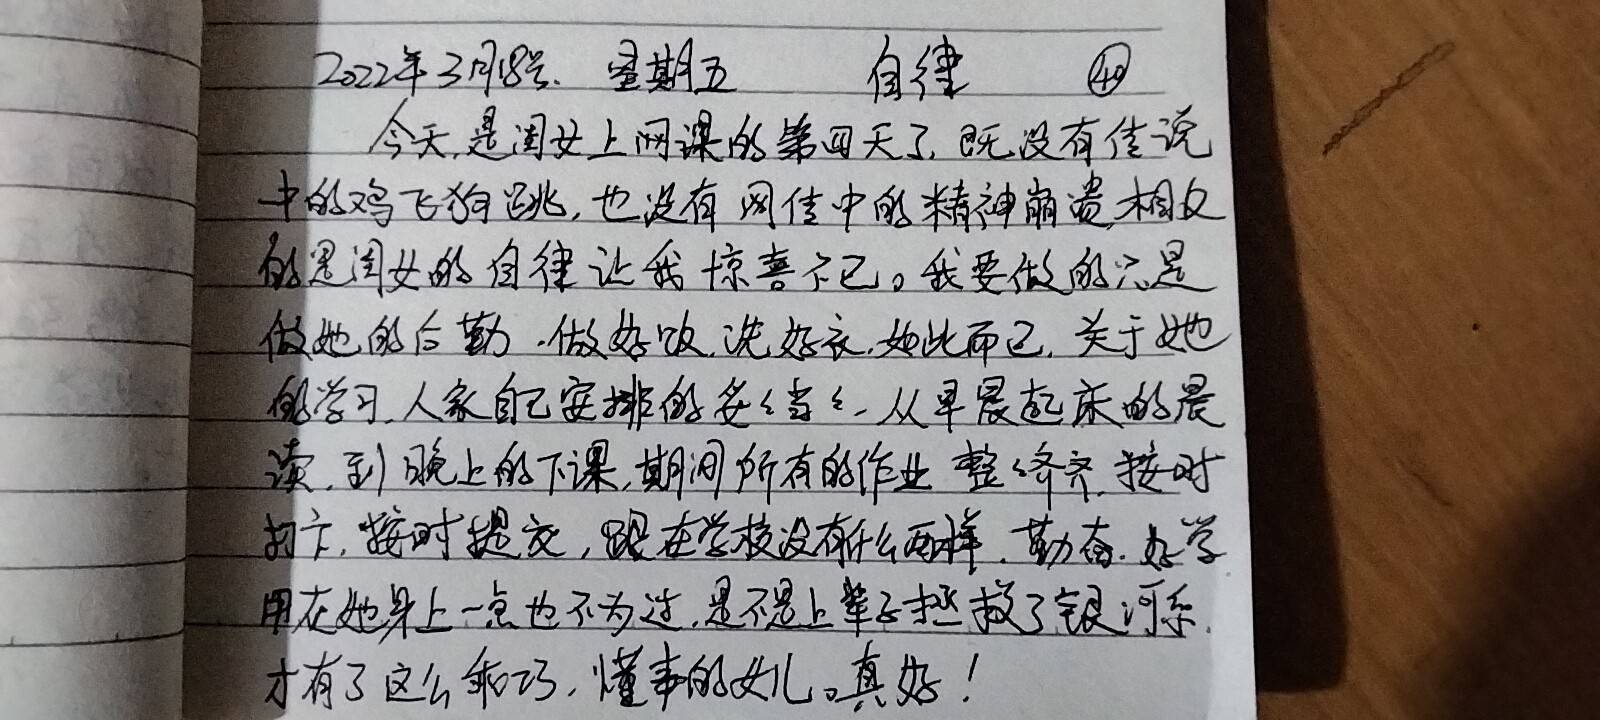 2022年3月18号. 星期五 自律 ㊵
今天,是闺女上网课的第四天了,既没有传说
中的鸡飞狗跳,也没有网传中的精神崩溃,相反
的是闺女的自律让我惊喜不已。我要做的只是
做她的后勤.做好饭,洗好衣,如此而已,关于她
的学习,人家自己安排的妥妥当当,从早晨起床的晨
读,到晚上的下课,期间所有的作业整整齐齐,按时
打卡,按时提交,跟在学校没有什么两样.勤奋.好学
用在她身上一点也不为过,是不是上辈子拯救了银河系,
才有了这么乖巧,懂事的女儿。真好!